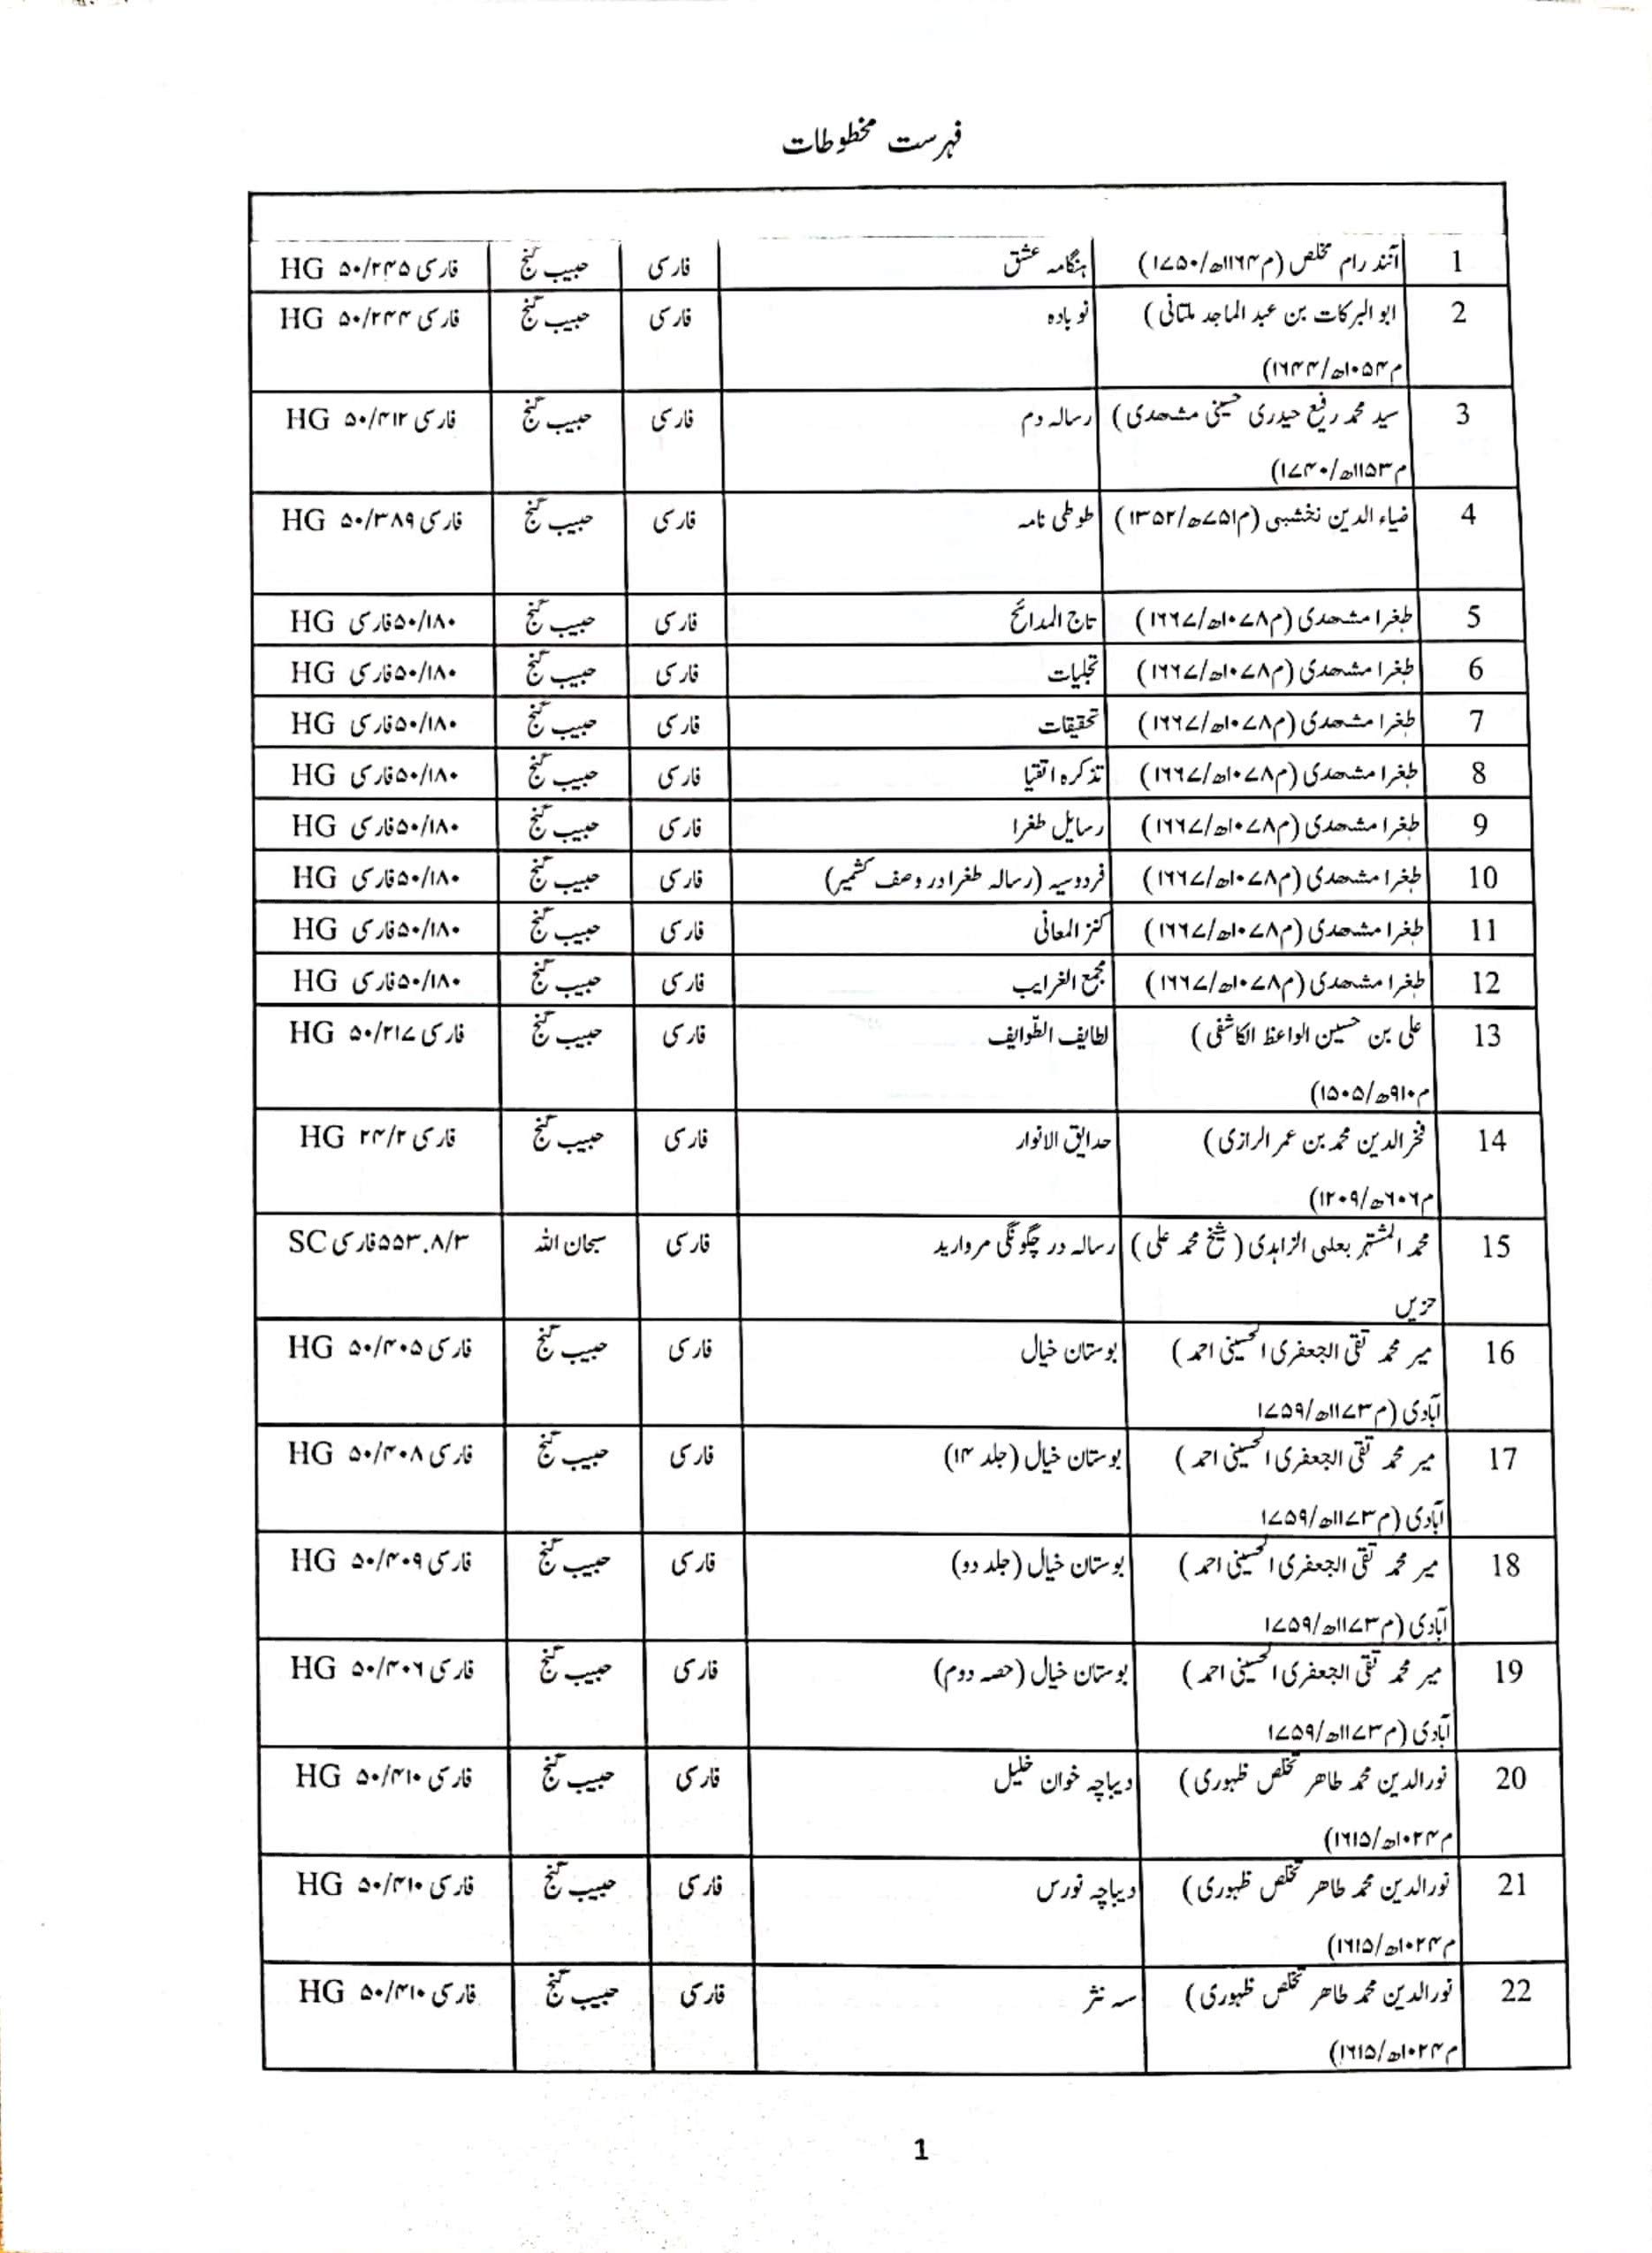 فہرست مخطوطات
1 آنند رام مخلص (م۱۱۶۴ھ/۱۷۵۰) ہنگامہ عشق فارسی حبیب گنج فارسی ۵۰/۲۴۵ HG
2 ابو البرکات بن عبد الماجد ملتانی ( نوبادہ فارسی حبیب گنج فارسی ۵۰/۲۴۴ HG
م۱۰۵۴ھ/۱۶۴۴)
3 سید محمد رفیع حیدری حسینی مشھدی ( رسالہ دم فارسی حبیب گنج فارسی ۵۰/۴۱۲ HG
م۱۱۵۳ھ/۱۷۴۰)
4 ضیاء الدین نخشبی (م۷۵۱ھ/۱۳۵۲) طوطی نامہ فارسی حبیب گنج فارسی ۵۰/۳۸۹ HG
5 طغرا مشھدی (م۱۰۷۸ھ/۱۶۶۷) تاج المدائح فارسی حبیب گنج ۵۰/۱۸۰فارسی HG
6 طغرا مشھدی (م۱۰۷۸ھ/۱۶۶۷) تجلیات فارسی حبیب گنج ۵۰/۱۸۰فارسی HG
7 طغرا مشھدی (م۱۰۷۸ھ/۱۶۶۷) تحقیقات فارسی حبیب گنج ۵۰/۱۸۰فارسی HG
8 طغرا مشھدی (م۱۰۷۸ھ/۱۶۶۷) تذکرہ اتقیا فارسی حبیب گنج ۵۰/۱۸۰فارسی HG
9 طغرا مشھدی (م۱۰۷۸ھ/۱۶۶۷) رسایل طغرا فارسی حبیب گنج ۵۰/۱۸۰فارسی HG
10 طغرا مشھدی (م۱۰۷۸ھ/۱۶۶۷) فردوسیہ (رسالہ طغرا در وصف کشمیر) فارسی حبیب گنج ۵۰/۱۸۰فارسی HG
11 طغرا مشھدی (م۱۰۷۸ھ/۱۶۶۷) کنز المعانی فارسی حبیب گنج ۵۰/۱۸۰فارسی HG
12 طغرا مشھدی (م۱۰۷۸ھ/۱۶۶۷) مجمع الغرایب فارسی حبیب گنج ۵۰/۱۸۰فارسی HG
13 علی بن حسین الواعظ الکاشفی ( لطایف الطّوایف فارسی حبیب گنج فارسی ۵۰/۲۱۷ HG
م۹۱۰ھ/۱۵۰۵)
14 فخر الدین محمد بن عمر الرازی ( حدایق الانوار فارسی حبیب گنج فارسی ۲۴/۲ HG
م۶۰۶ھ/۱۲۰۹)
15 محمد المشتہر بعلی الزاہدی ( شیخ محمد علی ) رسالہ در چگونگی مروارید فارسی سبحان اللہ ۵۵۳.۸/۳فارسی SC
حزیں
16 میر محمد تقی الجعفری الحسینی احمد ( بوستان خیال فارسی حبیب گنج فارسی ۵۰/۴۰۵ HG
آبادی (م۱۱۷۳ھ/۱۷۵۹
17 میر محمد تقی الجعفری الحسینی احمد ( بوستان خیال (جلد ۱۴) فارسی حبیب گنج فارسی ۵۰/۴۰۸ HG
آبادی (م۱۱۷۳ھ/۱۷۵۹
18 میر محمد تقی الجعفری الحسینی احمد ( بوستان خیال (جلد دو) فارسی حبیب گنج فارسی ۵۰/۴۰۹ HG
آبادی (م۱۱۷۳ھ/۱۷۵۹
19 میر محمد تقی الجعفری الحسینی احمد ( بوستان خیال (حصہ دوم) فارسی حبیب گنج فارسی ۵۰/۴۰۶ HG
آبادی (م۱۱۷۳ھ/۱۷۵۹
20 نورالدین محمد طاھر تخلص ظہوری ( دیباچہ خوان خلیل فارسی حبیب گنج فارسی ۵۰/۴۱۰ HG
م۱۰۲۴ھ/۱۶۱۵)
21 نورالدین محمد طاھر تخلص ظہوری ( دیباچہ نورس فارسی حبیب گنج فارسی ۵۰/۴۱۰ HG
م۱۰۲۴ھ/۱۶۱۵)
22 نورالدین محمد طاھر تخلص ظہوری ( سہ نثر فارسی حبیب گنج فارسی ۵۰/۴۱۰ HG
م۱۰۲۴ھ/۱۶۱۵)
1